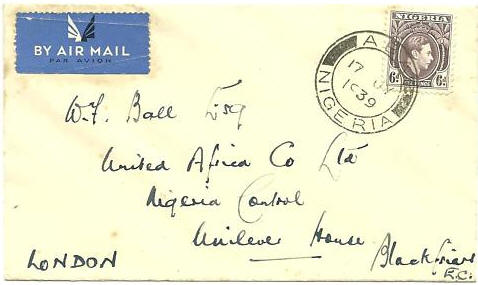 BY AIR MAIL
PAR AVION
NIGERIA
6d 6d
17
1939
NIGERIA
W.F. Ball Esq
United Africa Co Ltd
Nigeria Control
Unilever House
Blackfriars
LONDON
E.C.